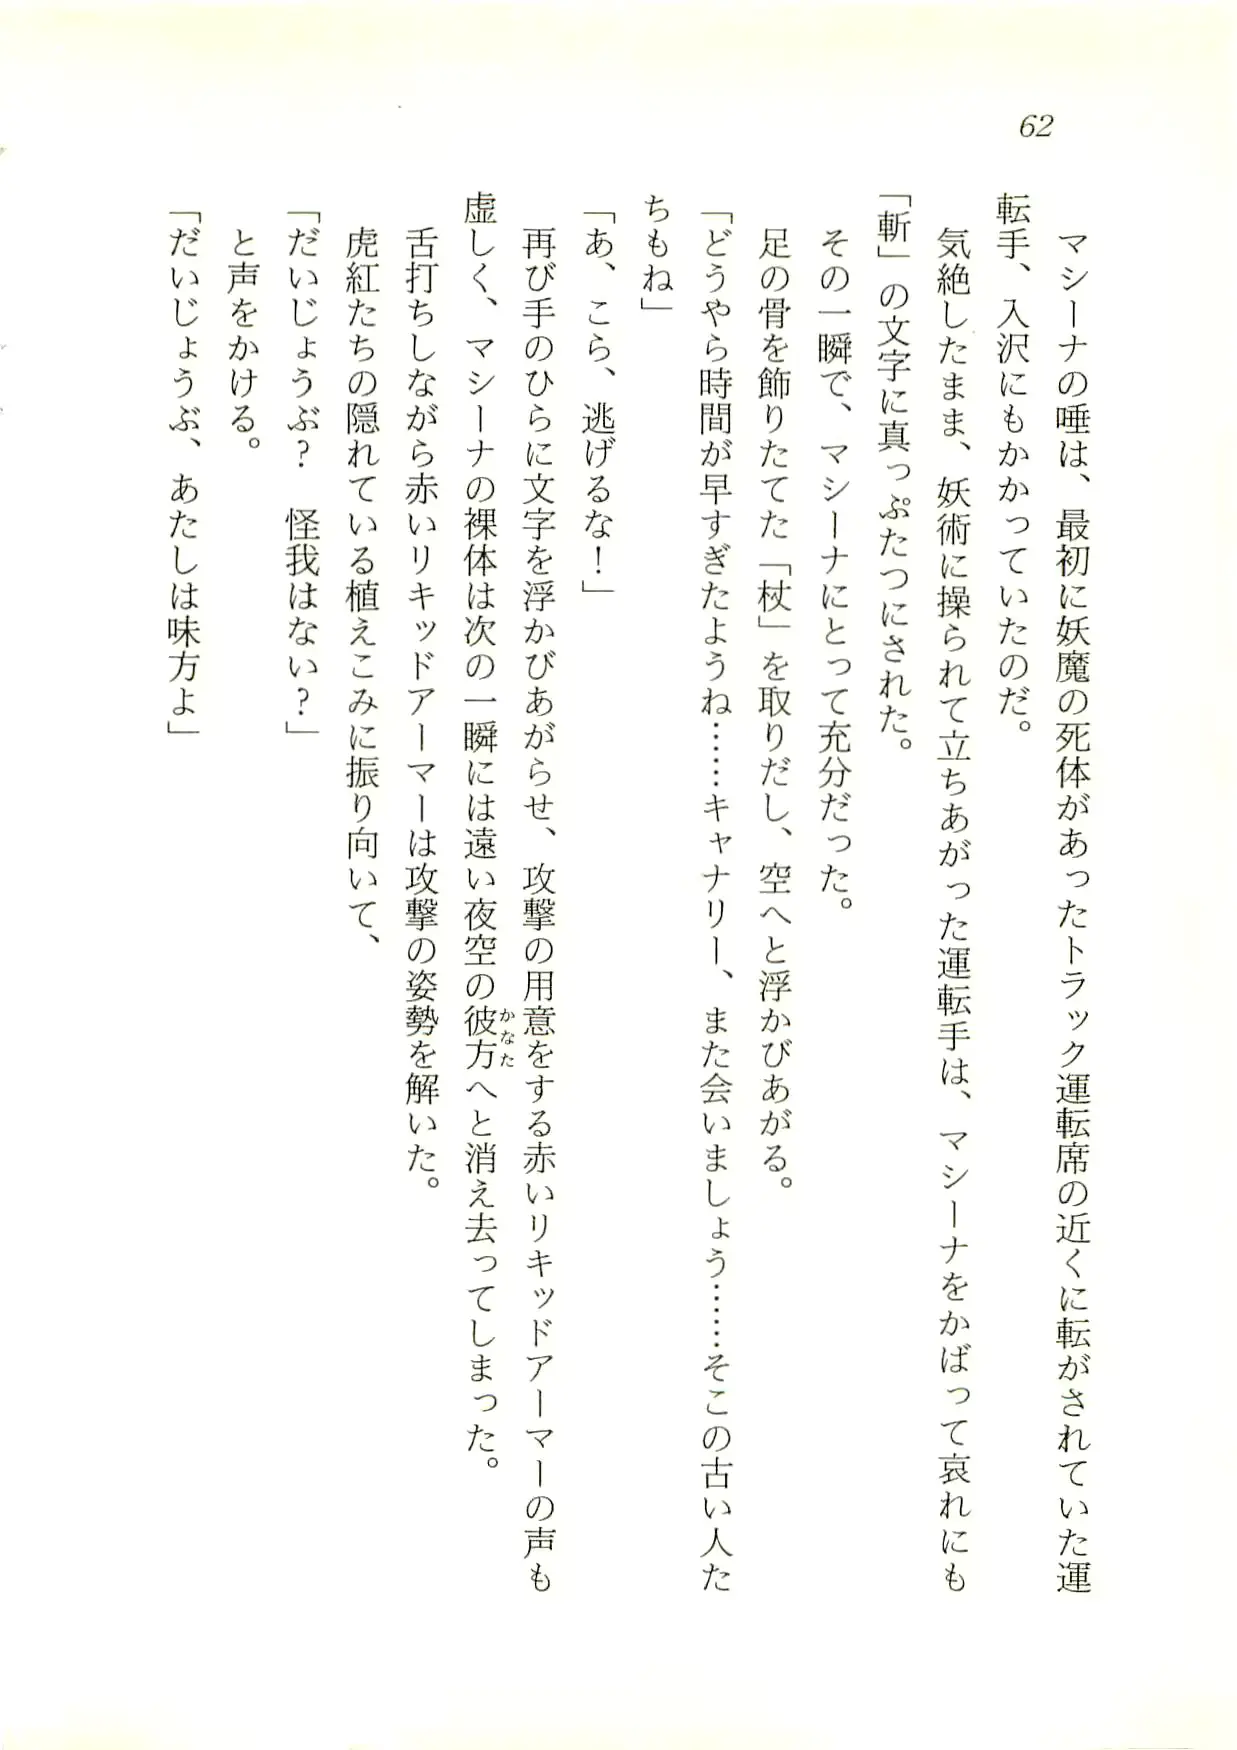 62
　マシーナの唾は、最初に妖魔の死体があったトラック運転席の近くに転がされていた運
転手、入沢にもかかっていたのだ。
　気絶したまま、妖術に操られて立ちあがった運転手は、マシーナをかばって哀れにも
「斬」の文字に真っぷたつにされた。
　その一瞬で、マシーナにとって充分だった。
　足の骨を飾りたてた「杖」を取りだし、空へと浮かびあがる。
「どうやら時間が早すぎたようね……キャナリー、また会いましょう……そこの古い人た
ちもね」
「あ、こら、逃げるな！」
　再び手のひらに文字を浮かびあがらせ、攻撃の用意をする赤いリキッドアーマーの声も
虚しく、マシーナの裸体は次の一瞬には遠い夜空の彼方へと消え去ってしまった。
かなた
　舌打ちしながら赤いリキッドアーマーは攻撃の姿勢を解いた。
　虎紅たちの隠れている植えこみに振り向いて、
「だいじょうぶ？　怪我はない？」
　と声をかける。
「だいじょうぶ、あたしは味方よ」